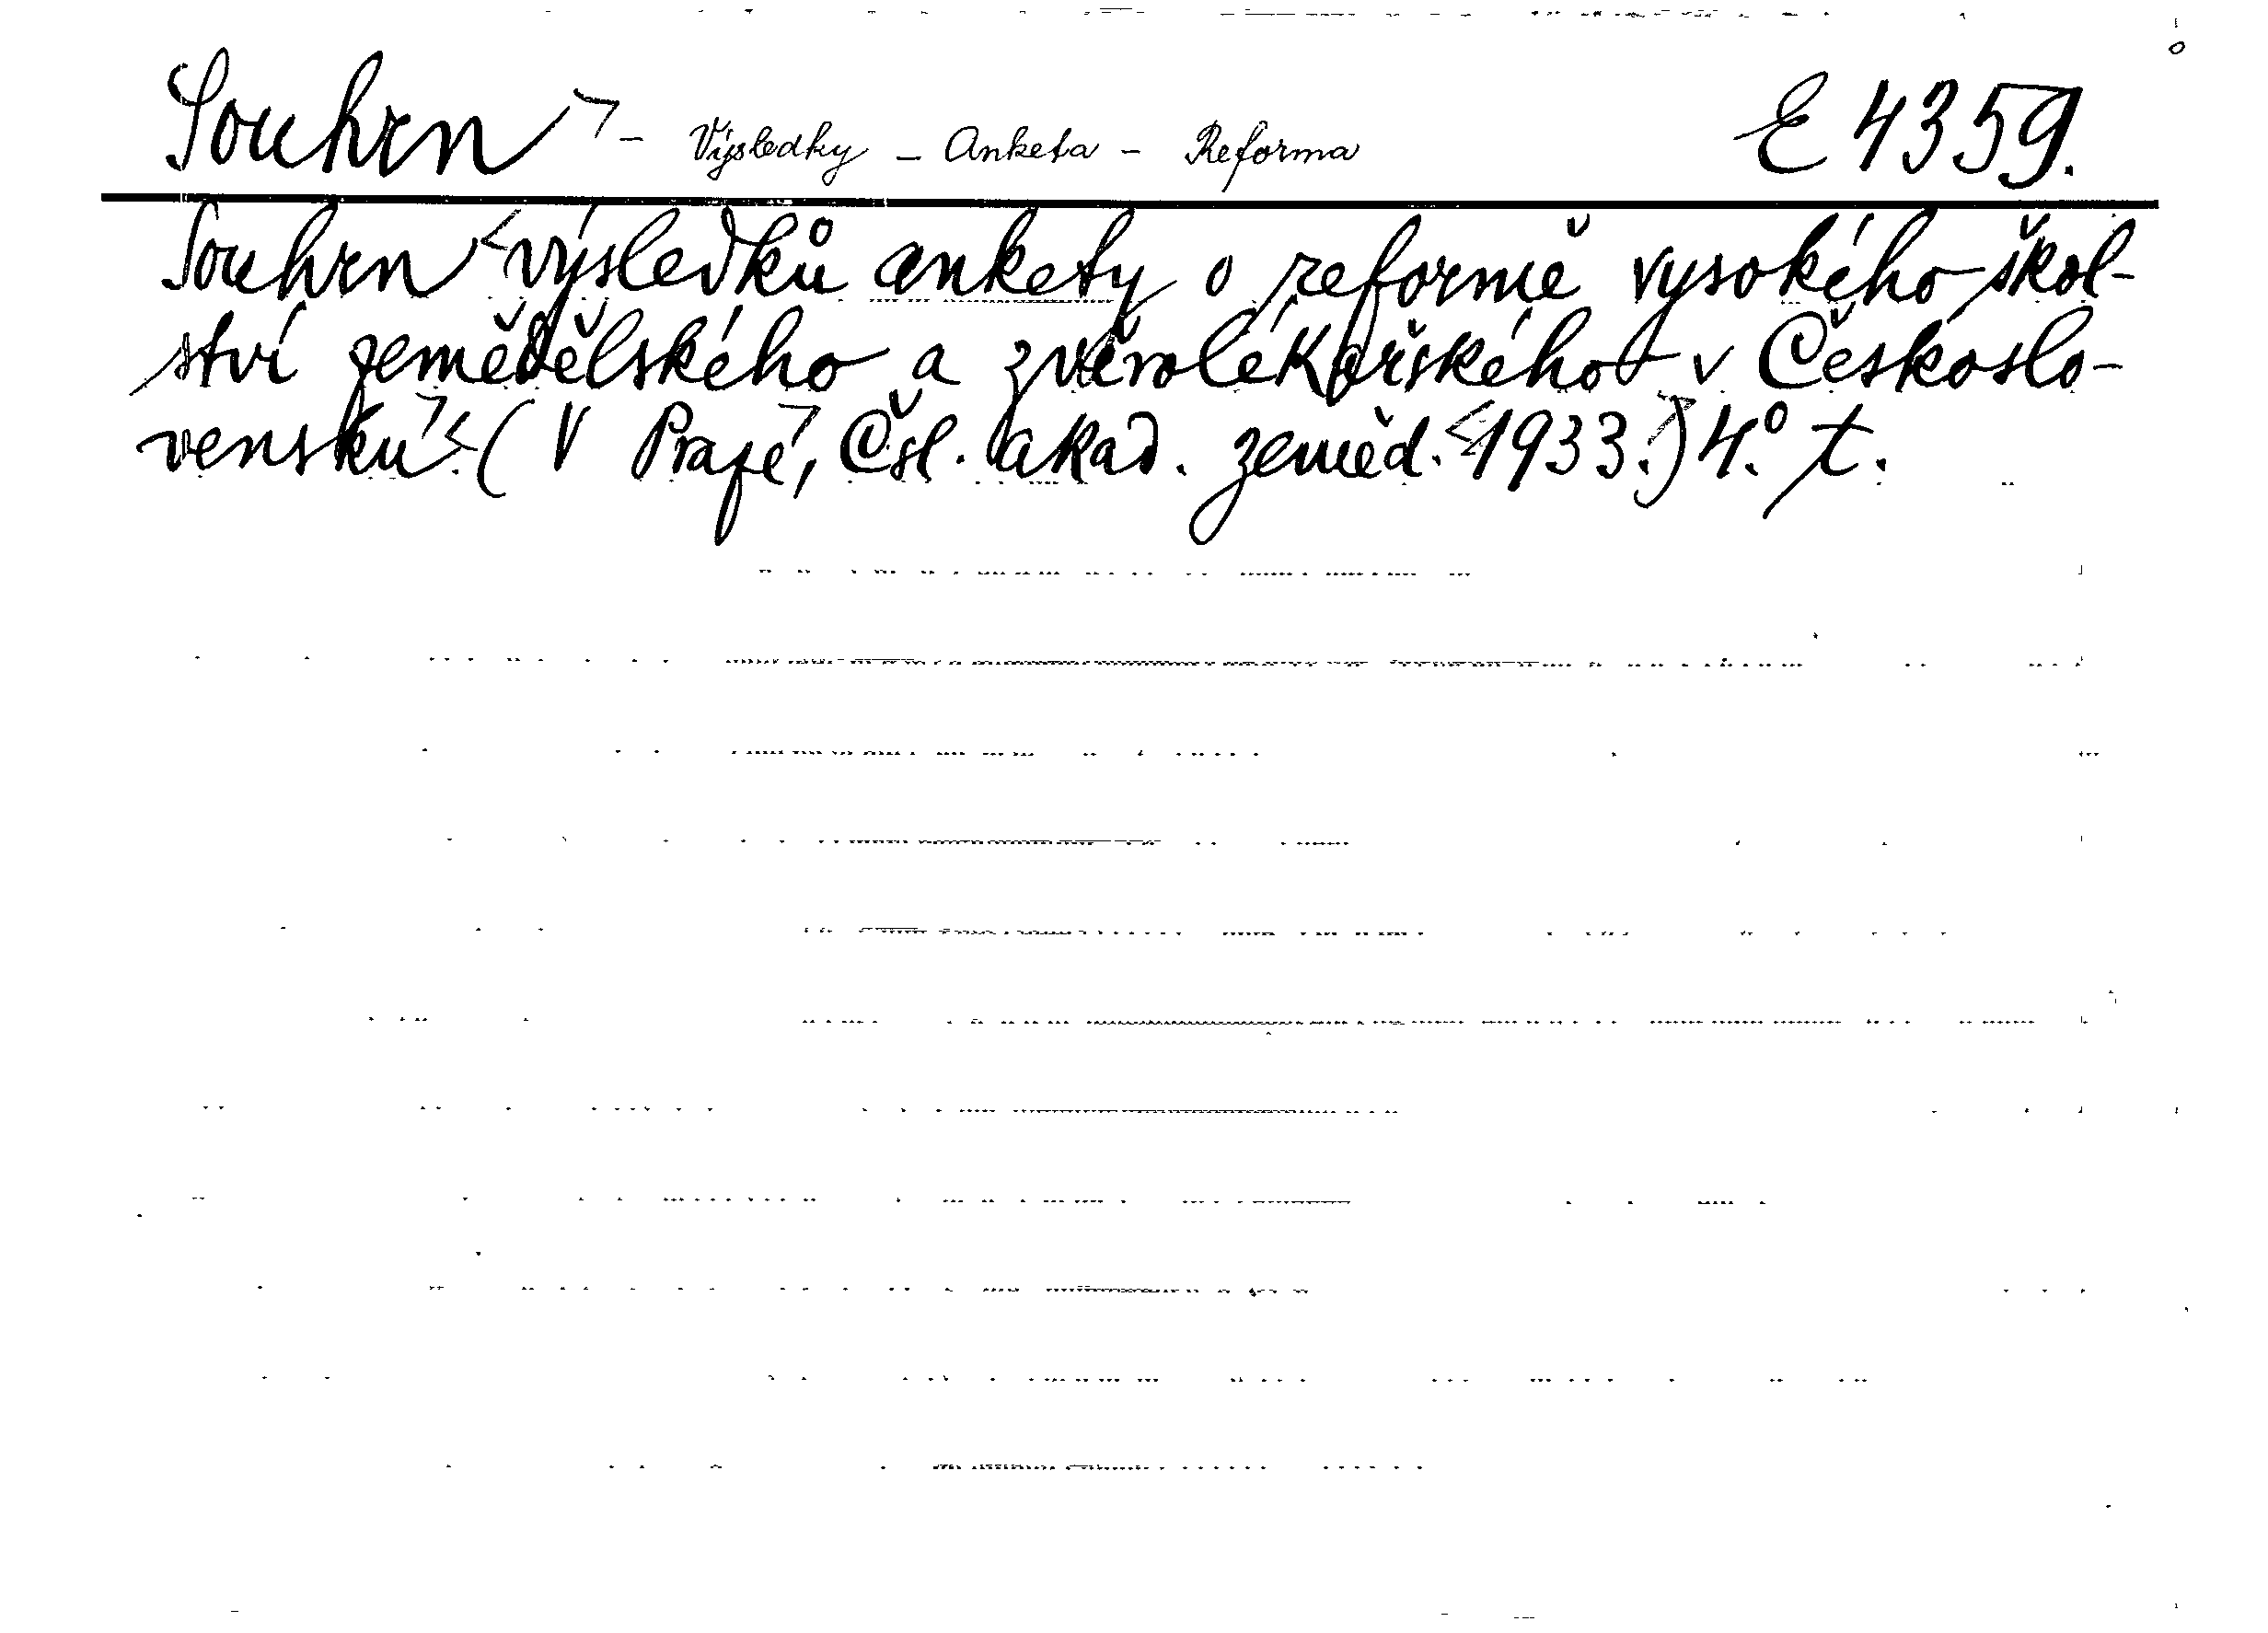 Souhrn - Výsledky - Anketa - Reforma E 4359.
Souhrn výsledků ankety o reformě vysokého škol-
ství zemědělského a zvěrolékařského v Českoslo-
vensku. (V Praze, Čsl. akad. zeměd. 1933.) 4.° t.